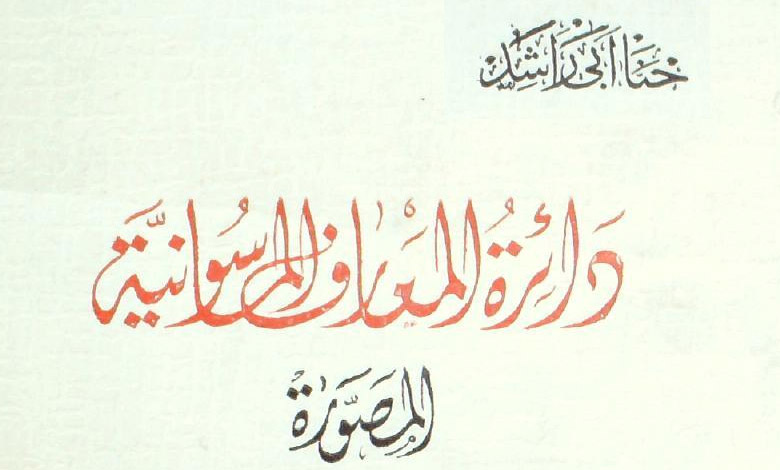 حنا أبي راشد
دائرة المعارف الماسونية
المصورة